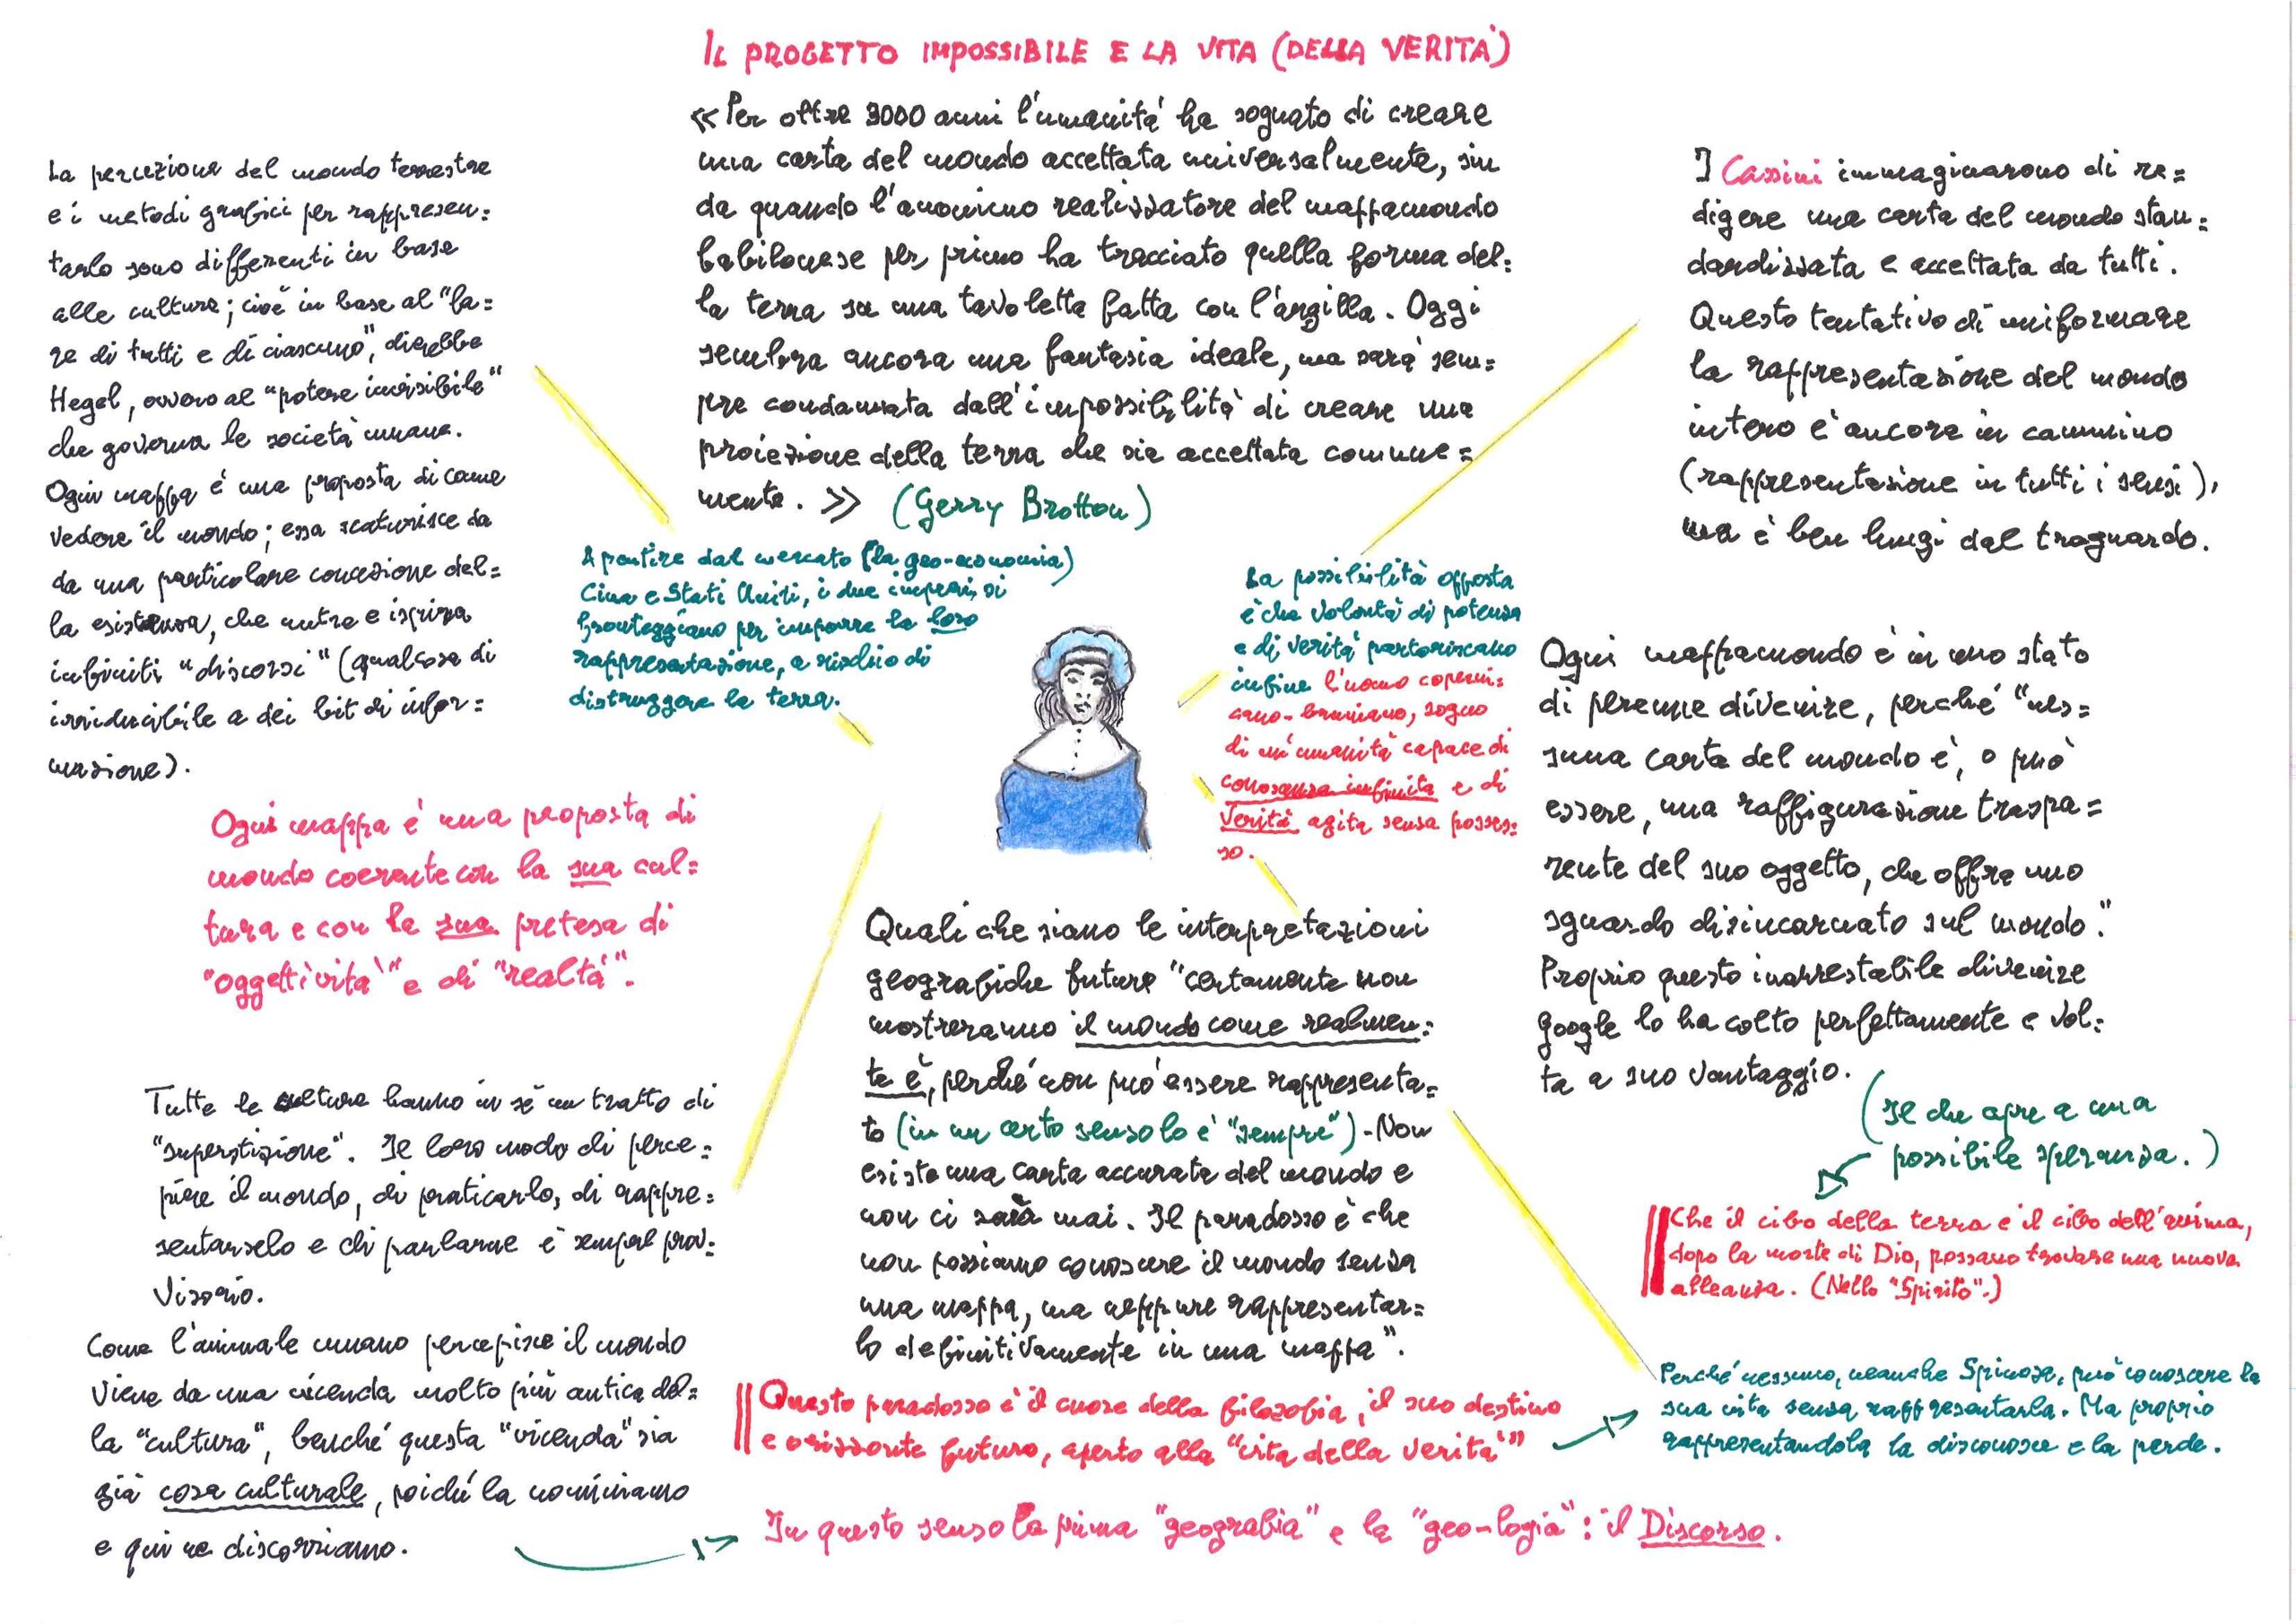 IL PROGETTO IMPOSSIBILE E LA VITA (DELLA VERITÀ)
«Per oltre 3000 anni l'umanità ha sognato di creare
una carta del mondo accettata universalmente, sin
da quando l'anonimo realizzatore del mappamondo
babilonese per primo ha tracciato quella forma del=
la terra su una tavoletta fatta con l'argilla. Oggi
sembra ancora una fantasia ideale, ma sarà sem=
pre condannata dall'impossibilità di creare una
proiezione della terra che sia accettata comune=
mente.» (Gerry Brotton)
La percezione del mondo terrestre
e i metodi grafici per rappresen=
tarlo sono differenti in base
alle culture; cioè in base al "fa=
re di tutti e di ciascuno", direbbe
Hegel, ovvero al "potere invisibile"
che governa le società umane.
Ogni mappa è una proposta di come
vedere il mondo; essa scaturisce da
da una particolare concezione del=
la esistenza, che nutre e ispira
infiniti "discorsi" (qualcosa di
irriducibile a dei bit di infor=
mazione).
Ogni mappa è una proposta di
mondo coerente con la sua cul=
tura e con la sua pretesa di
"oggettività" e di "realtà".
Tutte le culture hanno in sé un tratto di
"superstizione". Il loro modo di perce=
pire il mondo, di praticarlo, di rappre=
sentarselo e di parlarne è sempre prov=
visorio.
Come l'animale umano percepisce il mondo
viene da una vicenda molto più antica del=
la "cultura", benché questa "vicenda" sia
già cosa culturale, poiché la nominiamo
e qui ne discorriamo.
A partire dal mercato (la geo-economia)
Cina e Stati Uniti, i due imperi, si
fronteggiano per imporre la loro
rappresentazione, a rischio di
distruggere la terra.
La possibilità opposta
è che volontà di potenza
e di verità partoriscano
infine l'uomo coperni=
cano-bruniano, sogno
di un'umanità capace di
conoscenza infinita e di
Verità agita senza posses=
so.
Quali che siano le interpretazioni
geografiche future "certamente non
mostreranno il mondo come realmen=
te è, perché non può essere rappresenta=
to (in un certo senso lo è "sempre") - Non
esiste una carta accurata del mondo e
non ci sarà mai. Il paradosso è che
non possiamo conoscere il mondo senza
una mappa, ma neppure rappresentar=
lo definitivamente in una mappa".
Questo paradosso è il cuore della filosofia, il suo destino
e orizzonte futuro, aperto alla "vita della verità"
In questo senso la prima "geografia" e la "geo-logia": il Discorso.
I Cassini immaginarono di re=
digere una carta del mondo stan=
dardizzata e accettata da tutti.
Questo tentativo di uniformare
la rappresentazione del mondo
intero è ancora in cammino
(rappresentazione in tutti i sensi),
ma è ben lungi dal traguardo.
Ogni mappamondo è in uno stato
di perenne divenire, perché "nes=
suna carta del mondo è, o può
essere, una raffigurazione traspa=
rente del suo oggetto, che offre uno
sguardo disincarnato sul mondo".
Proprio questo inarrestabile divenire
Google lo ha colto perfettamente e vol=
ta a suo vantaggio.
(Il che apre a una
possibile speranza.)
Che il cibo della terra e il cibo dell'anima,
dopo la morte di Dio, possano trovare una nuova
alleanza. (Nello "Spirito".)
Perché nessuno, neanche Spinoza, può conoscere la
sua vita senza rappresentarla. Ma proprio
rappresentandola la disconosce e la perde.